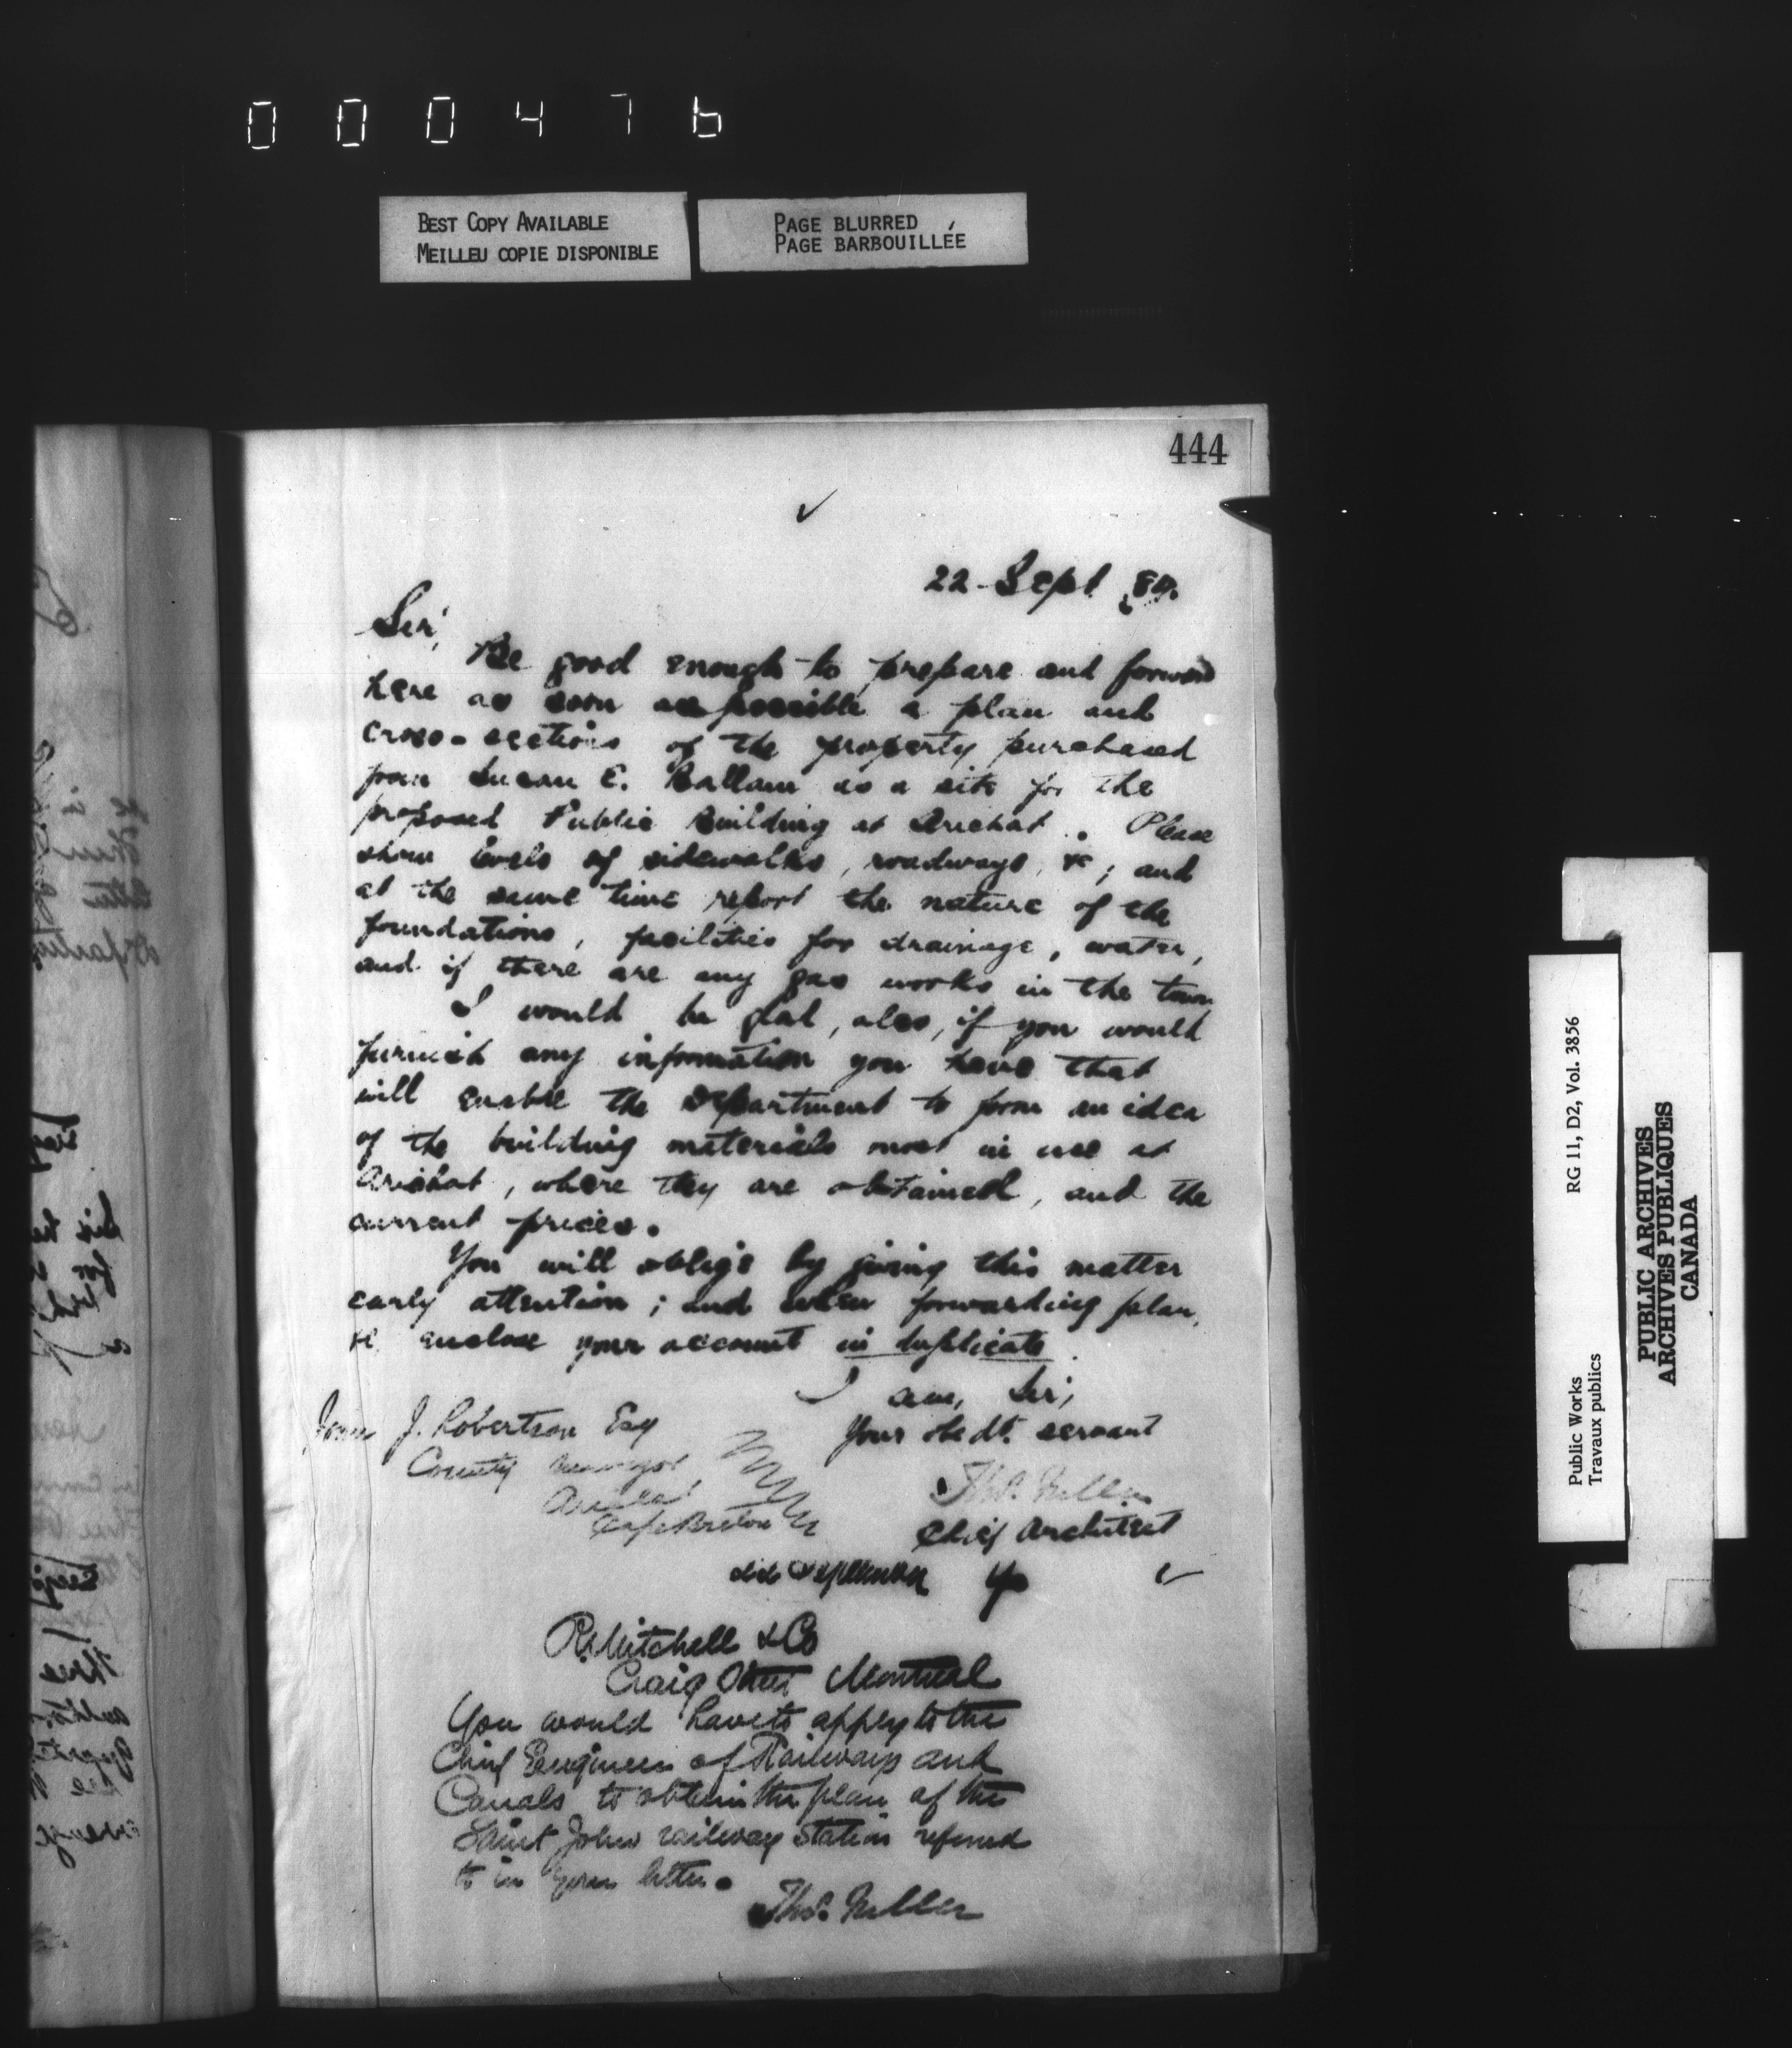 000476
BEST COPY AVAILABLE
MEILLEU COPIE DISPONIBLE
PAGE BLURRED
PAGE BARBOUILLÉE
444
22 - Sept.
Sir,
Be good enough to prepare and forward
here as soon as possible a plan and
cross-sections of the property purchased
from Susan E. Ballam as a site for the
proposed Public Building at Arichat. Please
show levels of sidewalks, roadways, &c; and
at the same time report the nature of the
foundations, facilities for drainage, water,
and if there are any gas works in the town
I would be glad, also, if you would
furnish any information you have that
will enable the Department to form an idea
of the building materials most in use at
Arichat, where they are obtained, and the
current prices.
You will oblige by giving this matter
early attention; and when forwarding plan,
&c enclose your account in duplicate.
I am, Sir,
Your obedt. servant
Thos. Fuller
Chief Architect
J. Robertson Esq
County
Arichat
Cape Breton
22 September
R. Mitchell & Co
Craig Street Montreal
You would have to apply to the
Chief Engineer of Railways and
Canals to obtain the plan of the
Saint John railway station referred
to in your letter.
Thos. Fuller
Public Works
Travaux publics
RG 11, D2, Vol. 3856
PUBLIC ARCHIVES
ARCHIVES PUBLIQUES
CANADA